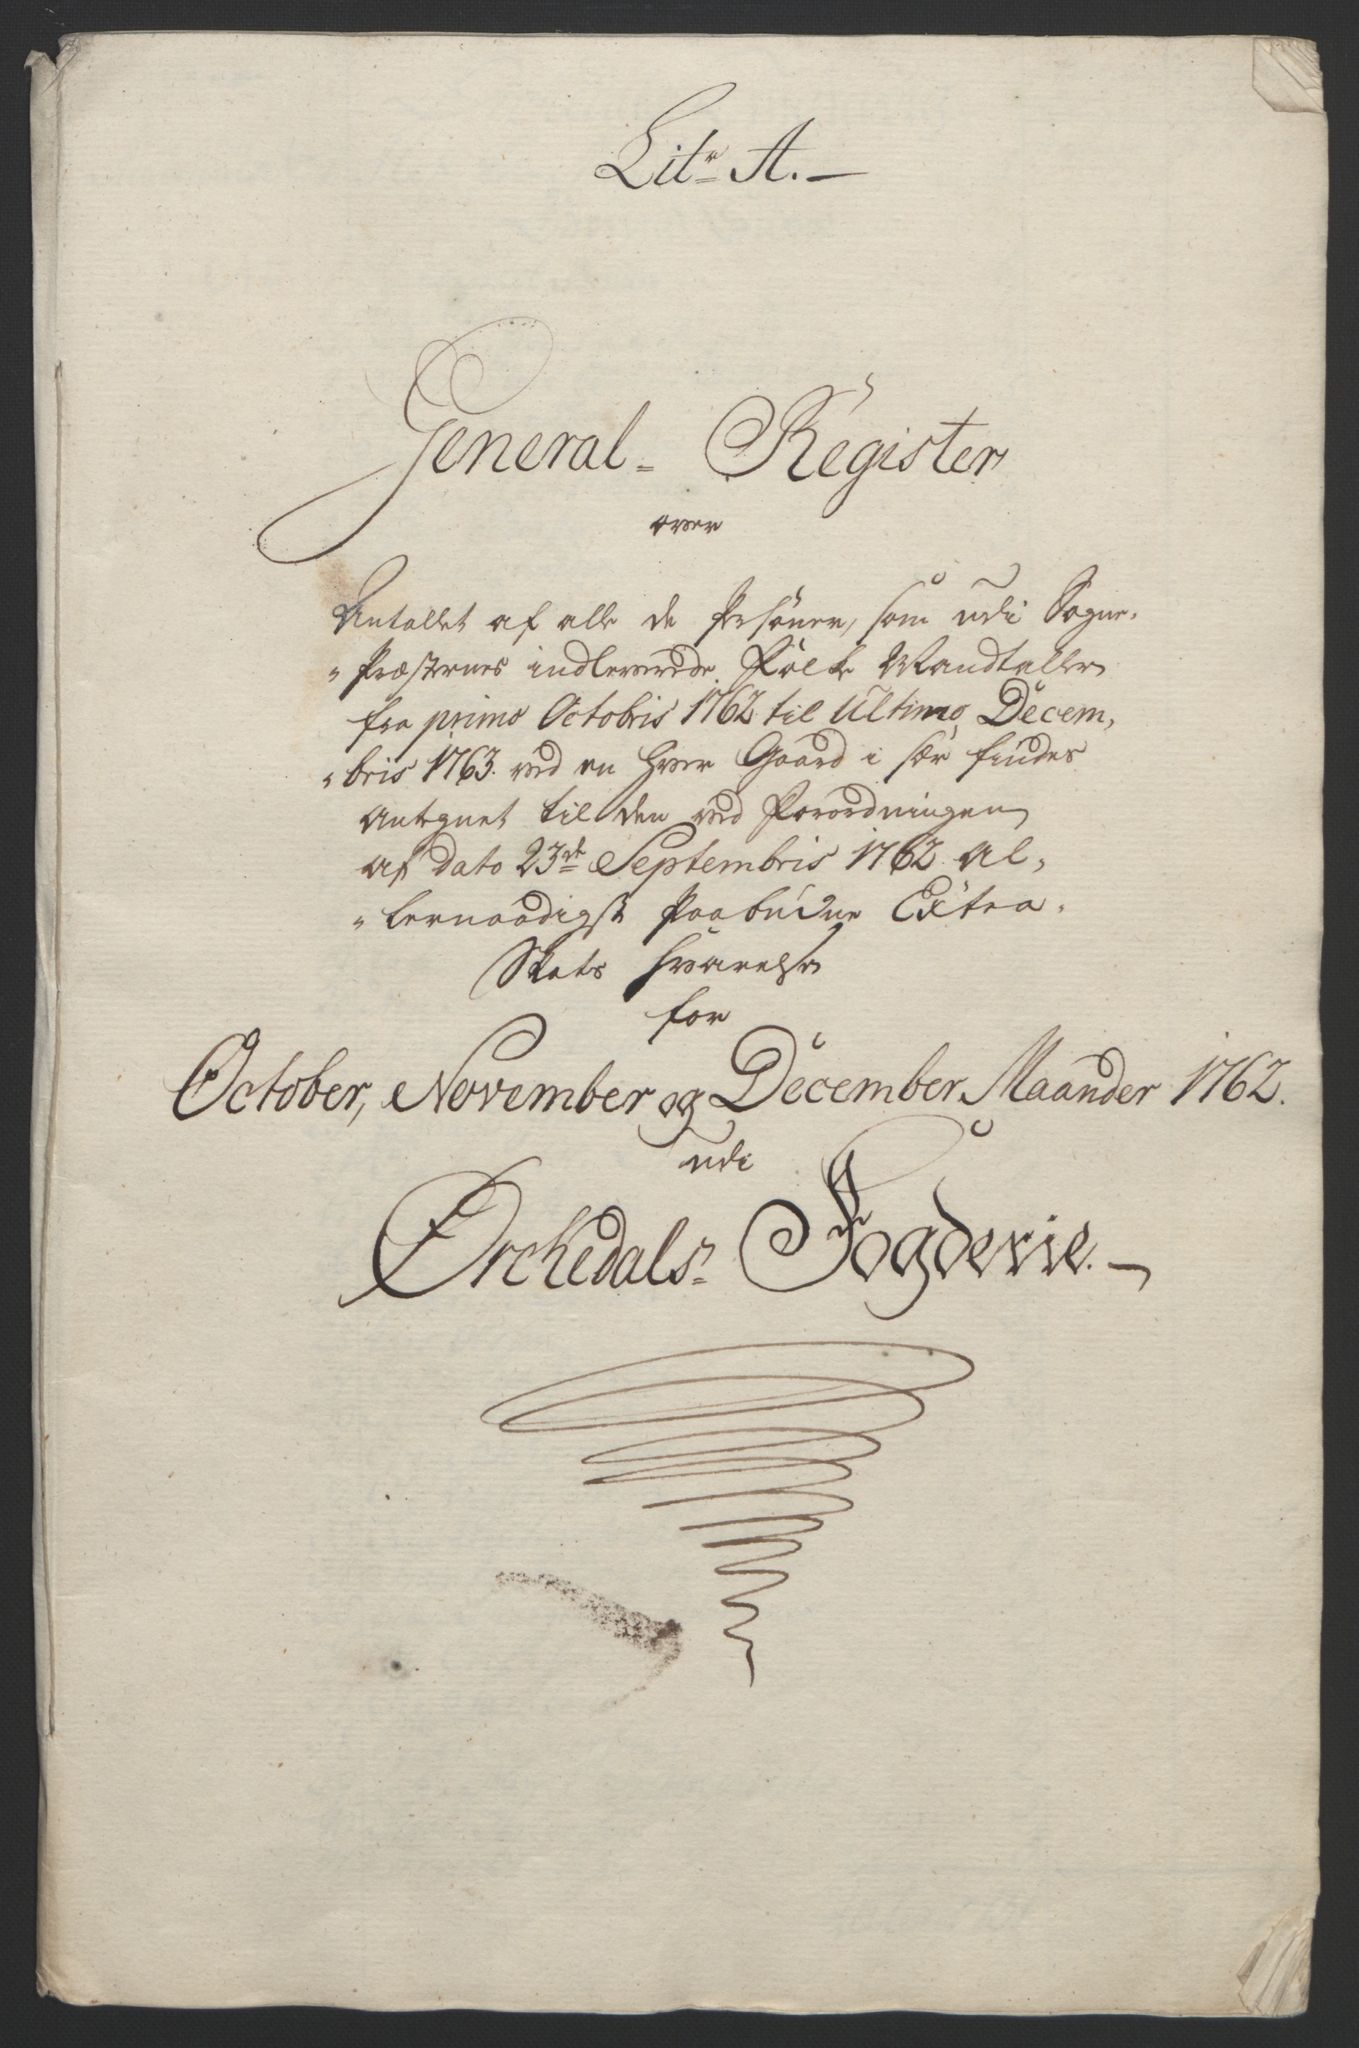 Litr A. —
General- Register
over
Antallet af alle de Persóner, som udi Sogne-
-Præsternes indleverede Folke Mandtaller
fra primo Octobris 1762 til Ultimo Decem,
-bris 1763. ved en hver Gaard i sær findes
Antegnet til den ved Forordningen
af dato 23de Septembris 1762 Al-
-lernaadigst Paabudne Extra-
Skats Svarelse
for
October, November og December Maander 1762.
udi
Ørckedals- Fogderie. —